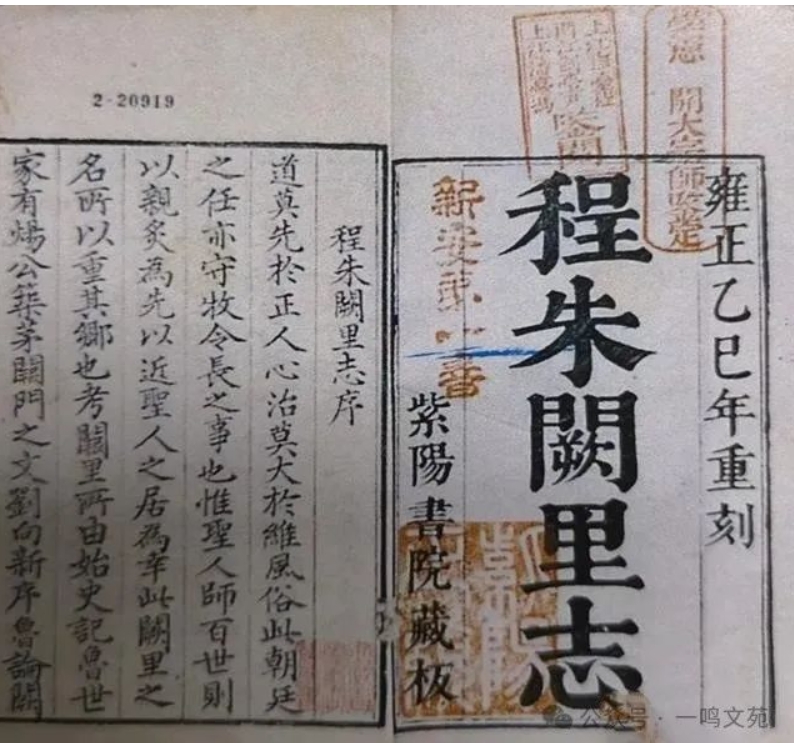 雍正乙巳年重刻
程朱闕里志
紫陽書院藏板
新安第一書
開大宗師鑒定
程朱闕里志序
道莫先於正人心治莫大於維風俗此朝廷
之任亦守牧令長之事也惟聖人師百世則
以親炙為先以近聖人之居為幸此闕里之
名所以重其鄉也考闕里所由始史記魯世
家有煬公築茅闕門之文劉向新序魯論闕
2-20919
公众号·一鸣文苑